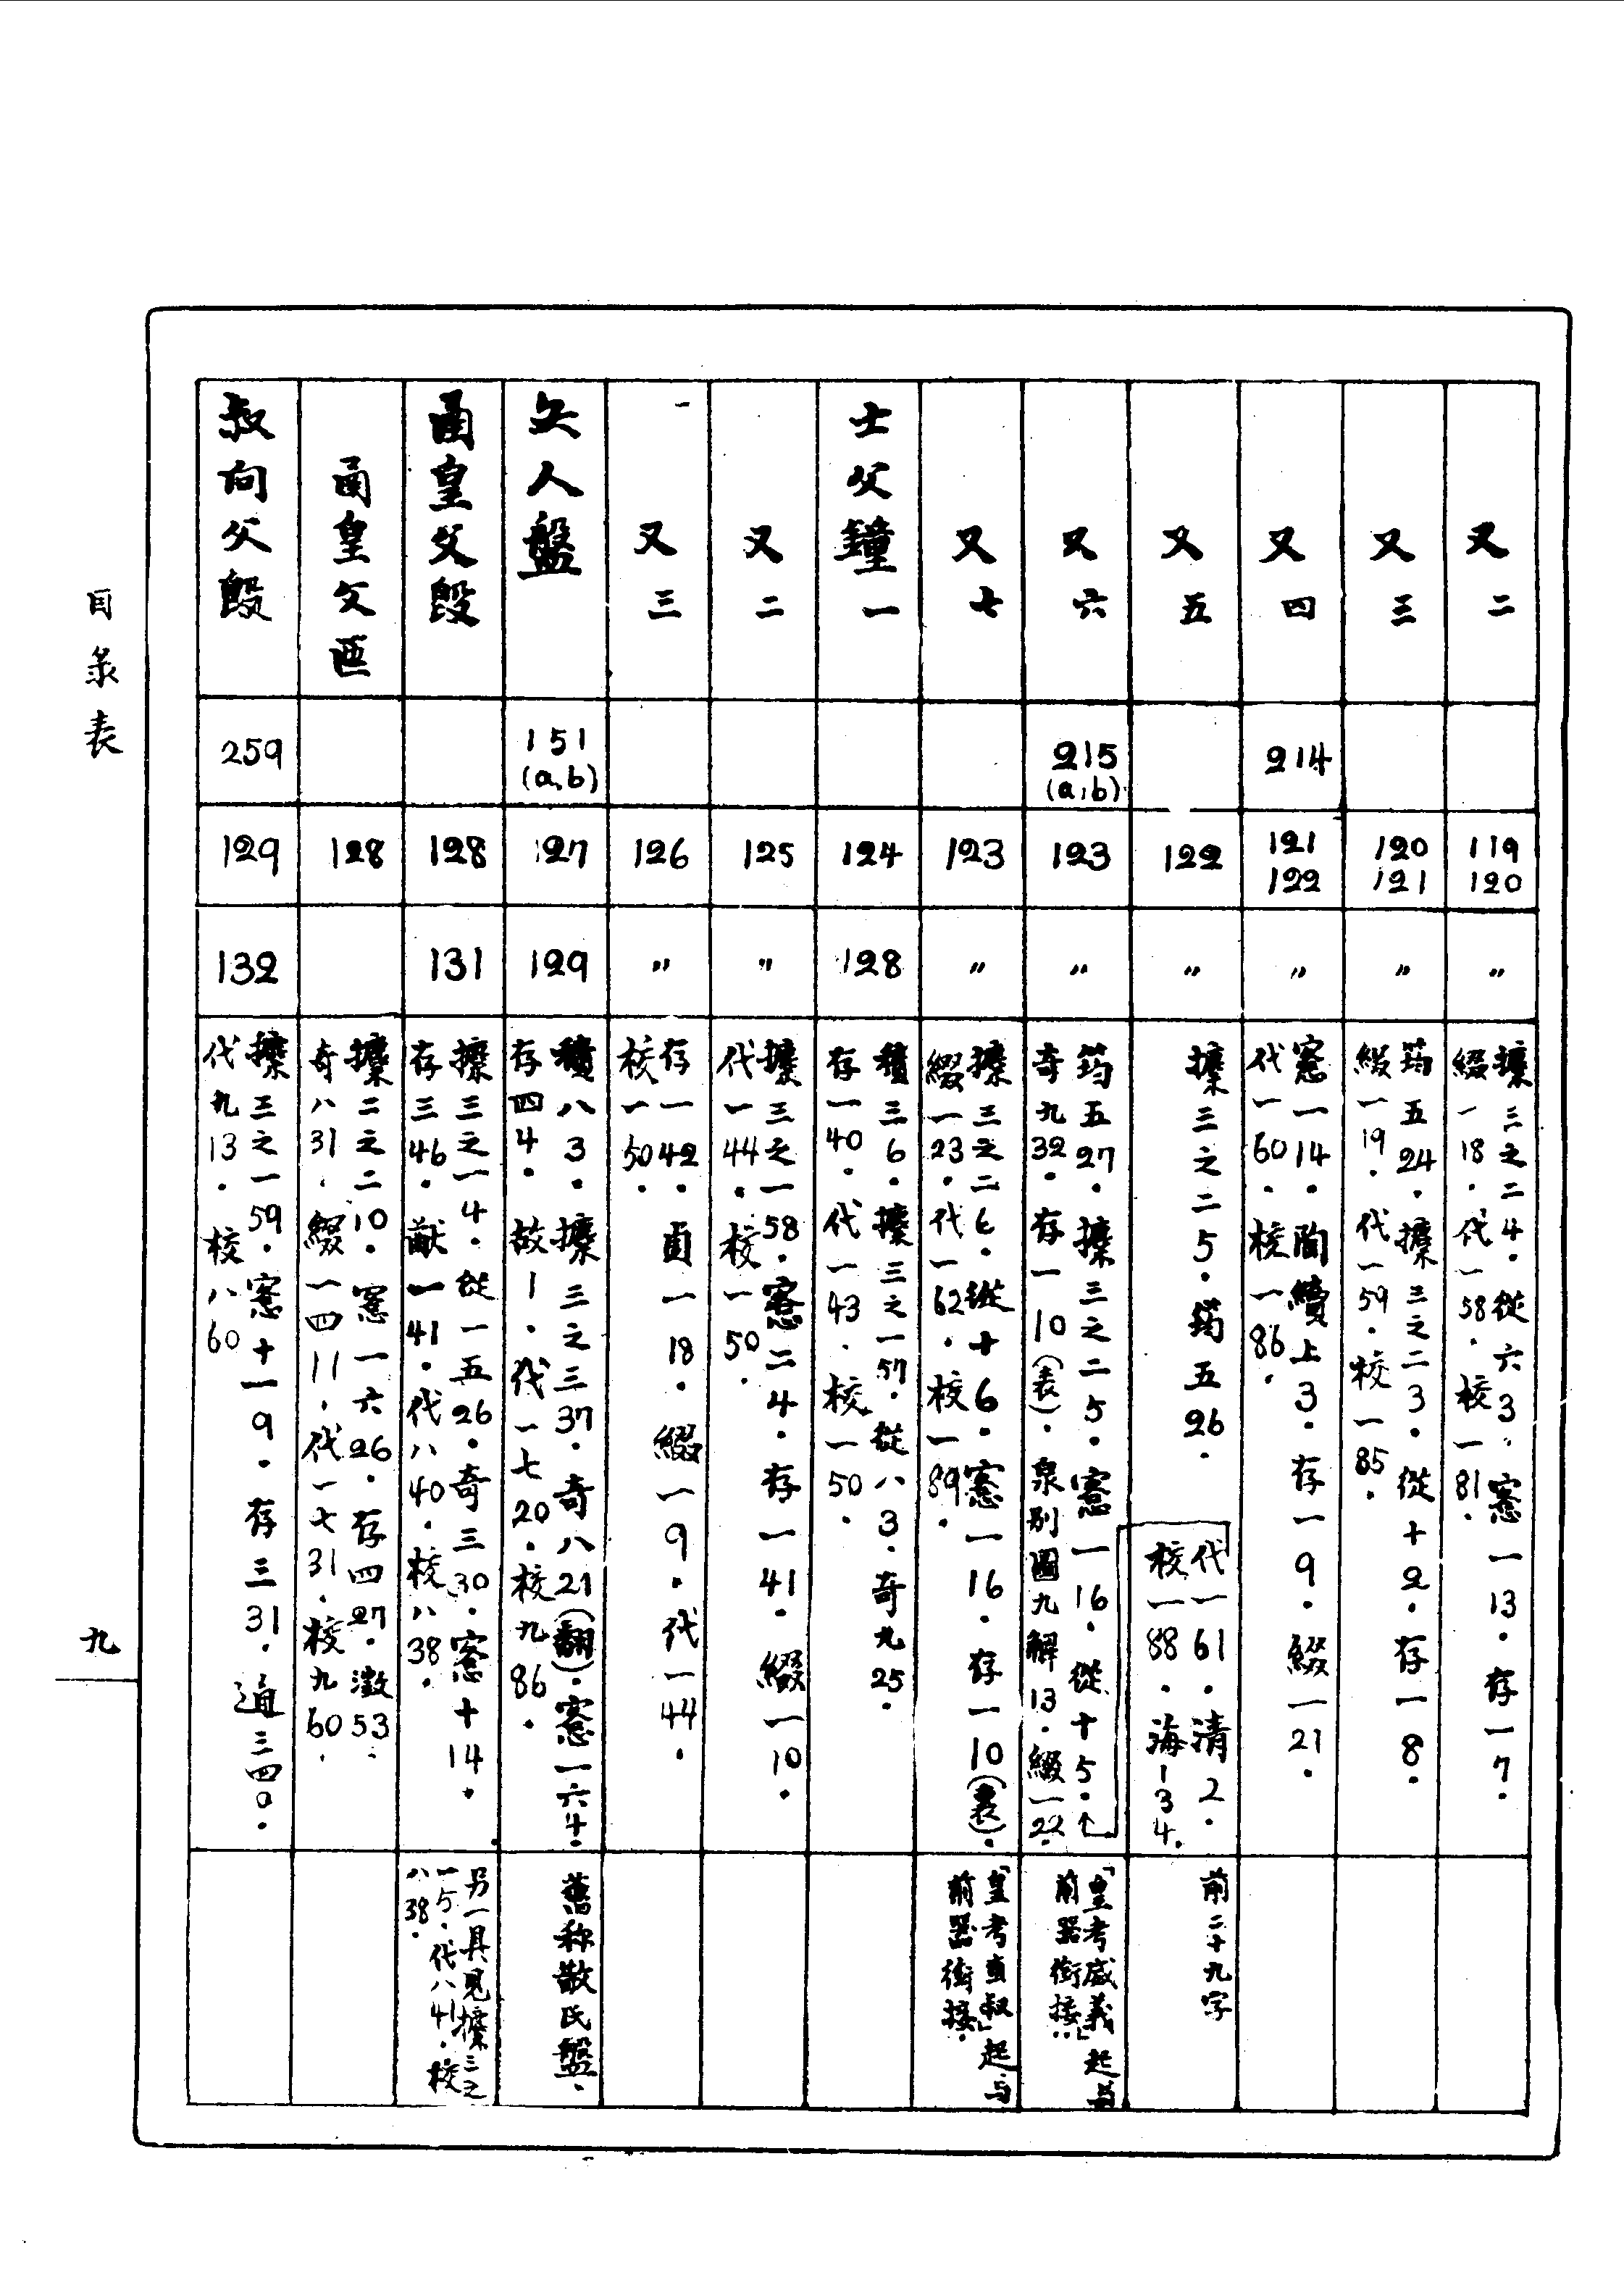 又二
119
120
〃
攈三之二4．從六3．愙一13．存一7．
綴一18．代一58．校一81．
又三
120
121
〃
筠五24．攈三之二3．從十2．存一8．
綴一19．代一59．校一85．
又四
214
121
122
〃
愙一14．陶續上3．存一9．綴一21．
代一60．校一86．
又五
122
〃
攈三之二5．筠五26．
代一61．清2．
校一88．海134．
前二十九字
又六
215
(a,b)
123
〃
筠五27．攈三之二5．愙一16．從十5．
奇九32．存一10(表)．泉別圖九解13．綴一22．
「皇考威義」起与
前器銜接．
又七
123
〃
攈三之二6．從十6．愙一16．存一10(表)．
綴一23．代一62．校一89．
「皇考叀叔」起与
前器銜接．
士父鐘一
124
128
積三6．攈三之一57．從八3．奇九25．
存一40．代一43．校一50．
又二
125
〃
攈三之一58．愙二4．存一41．綴一10．
代一44．校一50．
又三
126
〃
存一42．貞一18．綴一9．代一44．
校一50．
夨人盤
151
(a,b)
127
129
積八3．攈三之三37．奇八21(翻)．愙一六4．
存四4．故1．代一七20．校九86．
舊称散氏盤．
函皇父𣪘
128
131
攈三之一4．從一五26．奇三30．愙十14．
存三46．猷一41．代八40．校八38．
另一具見攈三之
一5．代八41．校
八38．
函皇父匜
128
攈二之二10．愙一六26．存四27．澂53．
奇八31．綴一四11．代一七31．校九60．
叔向父𣪘
259
129
132
攈三之一59．愙十一9．存三31．通三四〇．
代九13．校八60
目录表
九